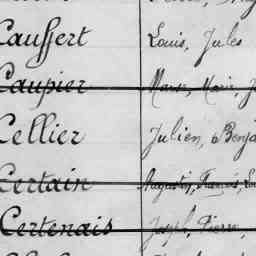 Caussert Louis, Jules
Caupier Marie, J
Cellier Julien, Benja
Certain Augustin, François, Lou
Certenais Joseph, Pierre,